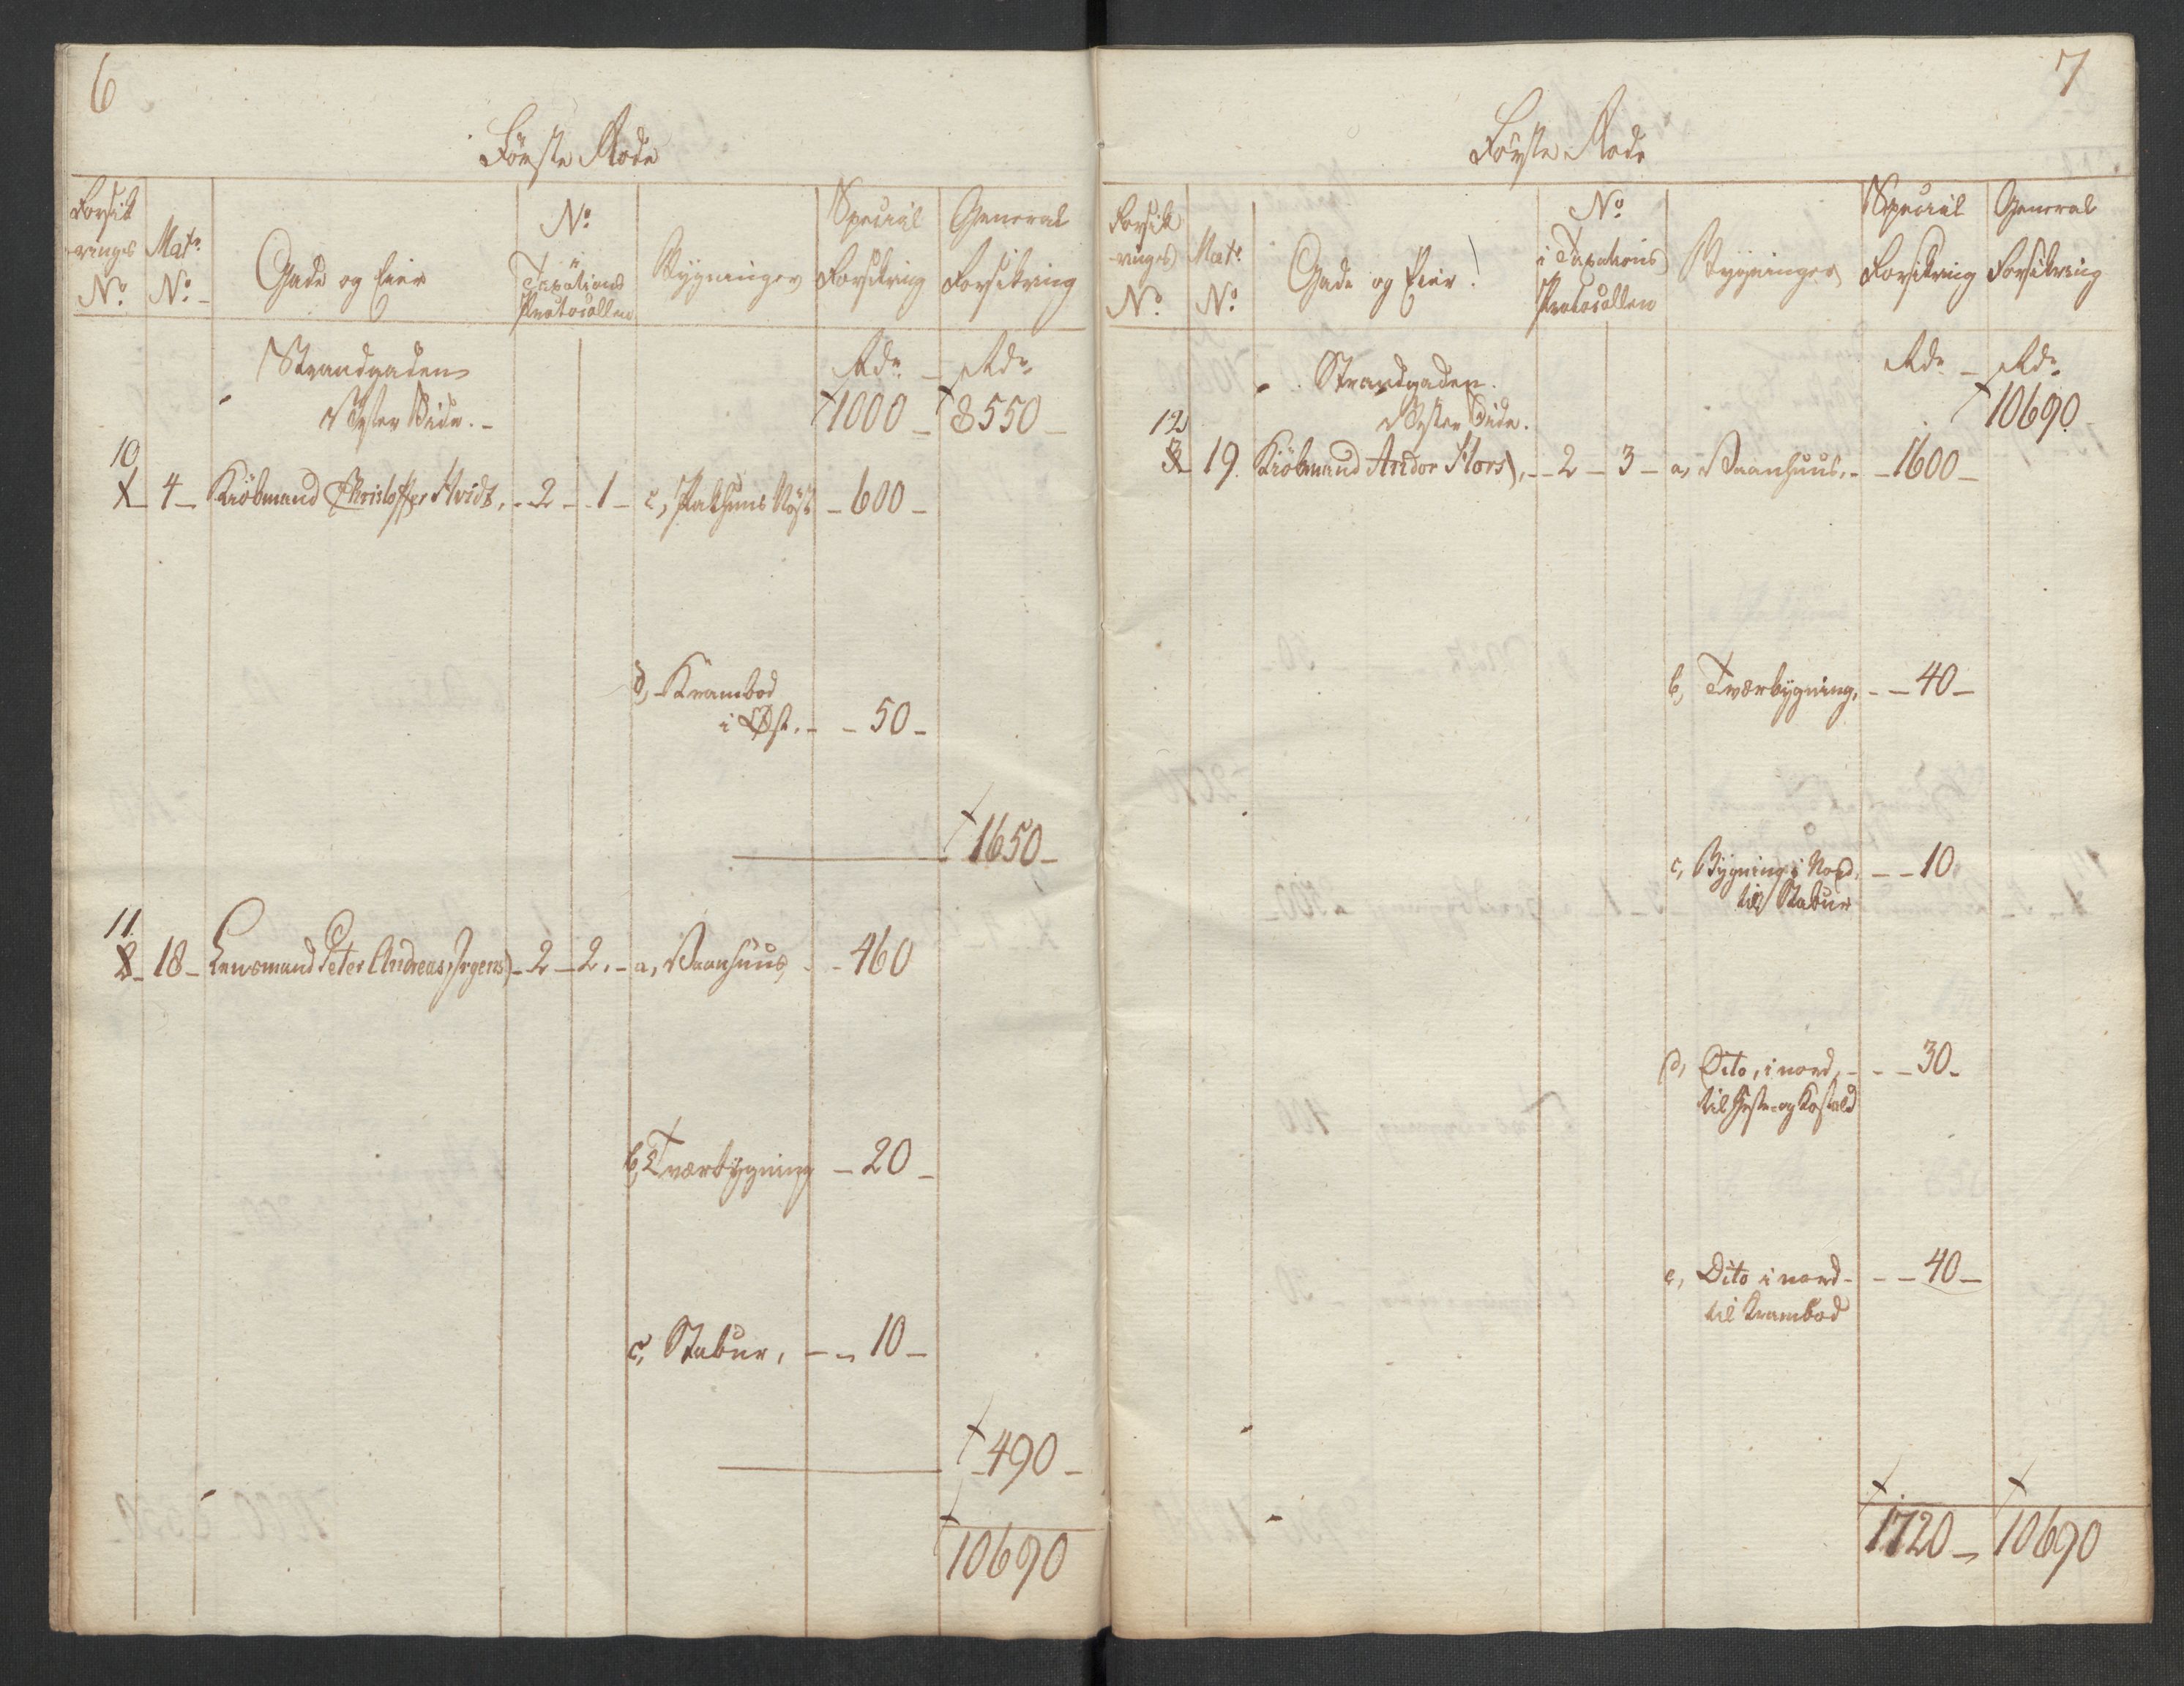 6
Første Rode
Forsik
rings
No
Matr
No
Gade og Eier
No
i
Taxations
Protocollen
Bygninger
Special
Forsikring
General
Forsikring
Strandgaden
Vester Side.
Rdr Rdr
1000 8550
10
4 Kiöbmand Christoffer Hvidt, 2 1 c, Pakhuus 600
d, Krambod
i Øst. 50
1650
11
8 18 Lensmand Peter Andreas Irgens 2 2. a, Vaanhuus 460
b, Tværbygning 20
c, Stabur, 10
490
10690
7
Første Rode
Forsik
rings
No
Matr
No
Gade og Eier
No
i Taxations
Protocollen
Bygninger
Special
Forsikring
General
Forsikring
Strandgaden.
Vester Side.
Rdr Rdr
10690
12
19. Kiöbmand Andor Hors, 2 3 a, Vaanhuus, 1600
b, Tværbygning, 40
c, Bygning i Nord, 10
til Stabur
d, Dito, i nord, 30
til Heste og Kostald
e, Dito i nord 40
til Krambod
1720 10690